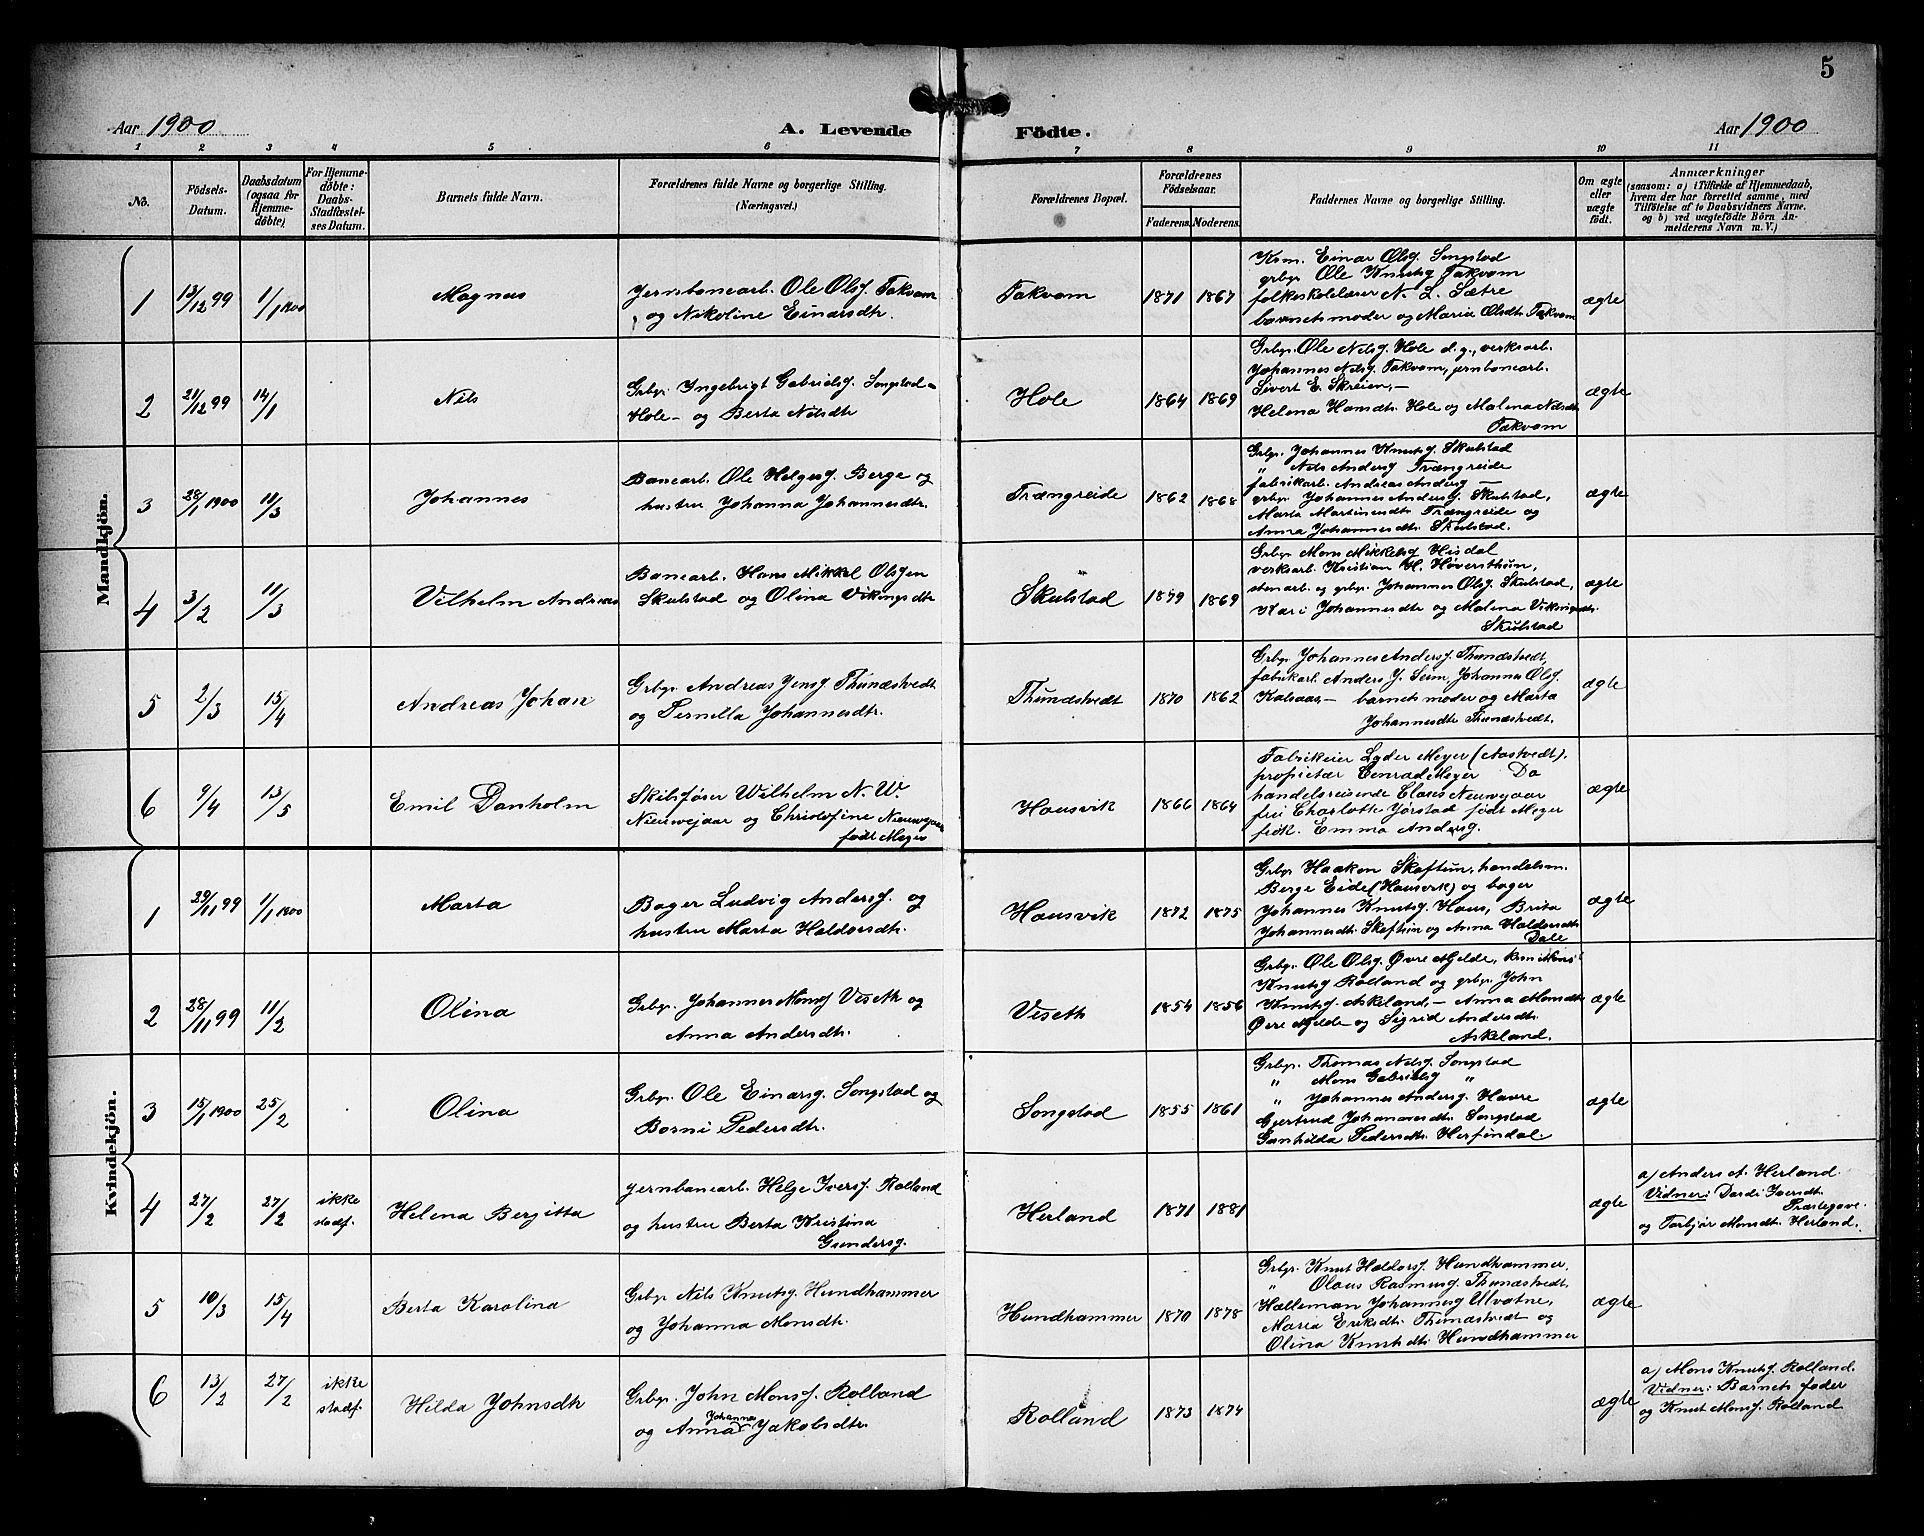 5
Aar 1900
A. Levende Födte.
Aar 1900
1 2 3 4 5 6 7 8 9 10 11
No.
Födsels-Datum.
Daabsdatum (ogsaa for Hjemmedøbte).
For Hjemmedøbte: Daabs-Stadfæstelses Datum.
Barnets fulde Navn.
Forældrenes fulde Navne og borgerlige Stilling.
(Næringsvei.)
Forældrenes Bopæl.
Forældrenes Fødselsaar.
Faderens. Moderens.
Faddernes Navne og borgerlige Stilling.
Om ægte eller uægte født.
Anmærkninger
(saasom: a) i Tilfælde af Hjemmedaab, hvem der har forrettet samme, med Tilföielse af to Daabsvidners Navne, og b) ved uægtefödte Börn Anmelderens Navn m. V.)
Mandkjön.
1 13/12 99 1/1 1900 Magnus
Jernbanearb. Ole Olsf. Takvam
og Nikoline Einarsdtr.
Takvam 1871 1867
Ksm. Einar Olsf. Songstad
grbr. Ole Knutsf. Takvam
folkeskolelærer N. L. Sætre
barnets moder og Maria Olsdtr. Takvam
ægte
2 21/12 99 14/1 Nils
Grbr. Ingebrigt Gabrielsf. Songstad-
Hole- og Berta Nilsdtr
Hole 1864 1869
Grbr. Ole Nilsf. Hole d.y., verksarb.
Johannes Nilsf. Takvam, jernbanearb.
Sivert E. Skreien,-
Helena Hansdtr. Hole og Malena Nilsdtr
Takvam
ægte
3 28/1 1900 11/3 Johannes
Banearb. Ole Helgesf. Berge og
hustru Johanna Johannesdtr.
Trængreide 1862 1868
Grbr. Johannes Knutsf. Skulstad
" Nils Andersf Trængreide
fabrikarb. Andreas Andersf —
grbr. Johannes Andersf. Skulstad,
Marta Martinusdtr Trængreide og
Anna Johannesdtr. Skulstad.
ægte
4 3/2 11/3 Vilhelm Andreas
Banearb. Hans Mikkel Olsen
Skulstad og Olina Vikingsdtr
Skulstad 1879 1869
Grbr. Mons Mikkelsf Hisdal
verksarb. Kristian H. Høversthun,
stenarb. og grbr. Johannes Olsf. Skulstad,
Kari Johannesdtr og Malena Vikingsdtr.
Skulstad
ægte
5 2/3 15/4 Andreas Johan
Grbr Andreas Jensf Thunestvedt
og Pernilla Johannesdtr.
Thunestvedt 1870 1862
Grbr Johannes Andersf. Thunestvedt,
fabrikarb. Anders J. Seim, Johannes Olsf.
Kalsaas,— barnets moder og Marta
Johannesdtr Thunestvedt.
ægte
6 9/4 13/5 Emil Danholm
Skibsfører Wilhelm N. W.
Nieuwejaar og Christofine Nieuwejaar
født Meyer
Hausvik 1866 1864
Fabrikeier Lyder Meyer (Aastvedt).
proprietær Conrad Meyer Do
handelsreisende Claus Nieuwejaar
fru Charlotte Jørstad født Meyer
frøk. Emma Andersg.
ægte
Kvindekjön.
1 29/11 99 1/1 1900 Marta
Bager Ludvig Andersf. og
hustru Marta Haldorsdtr.
Hausvik 1872 1875
Grbr Haakon Skaftun, handelsm.
Berge Eide (Hausvik) og bager
Johannes Knutsf. Haus, Brita
Johannesdtr. Skaftun og Anna Haldorsdtr
Dale
ægte
2 28/11 99 11/2 Olina
Grbr. Johannes Monsf Viseth og
Anna Andersdtr.
Viseth 1854 1856
Grbr. Ole Olsf. Øvre Mjelde, ksm Mons
Knutsf Rolland og grbr. John
Knutsf. Askeland,— Anna Monsdtr
Øvre Mjelde og Sigrid Andersdtr.
Askeland.
ægte
3 15/1 1900 25/2 Olina
Grbr. Ole Einarsf. Songstad og
Borni Pedersdtr.
Songstad 1855 1861
Grbr. Thomas Nilsf. Songstad
" Mons Gabrielsf "
" Johannes Andersf. Haure
Gjertrud Johannesdtr. Songstad
Gunhilda Pedersdtr. Herfindal.
ægte
4 27/2 27/2 ikke stadf. Helena Bergitta
Jernbanearb. Helge Iversf. Rolland
og hustru Berta Kristina
Gundersg.
Herland 1871 1881
ægte
a) Anders A. Herland.
Vidner: Dardi Iversdtr.
Præstegare-
og Torbjør Monsdtr. Herland.
5 10/3 15/4 Berta Karolina
Grbr Nils Knutsf. Hundhammer
og Johanna Monsdtr.
Hundhammer 1870 1878
Grbr. Knut Haldorsf. Hundhammer,
" Olaus Rasmusf. Thunestvedt,
Halleman Johannesf Ulvatne,
Maria Eriksdtr. Thunestvedt og
Olina Knutsdtr. Hundhammer
ægte
6 13/2 27/2 ikke stadf. Hilda Johnsdtr
Grbr. John Monsf. Rolland
Johanna
og Anna Jakobsdtr.
Rolland 1873 1874
ægte
a) Mons Knutsf. Rolland.
Vidner: Barnets fader
og Knut Monsf. Rolland